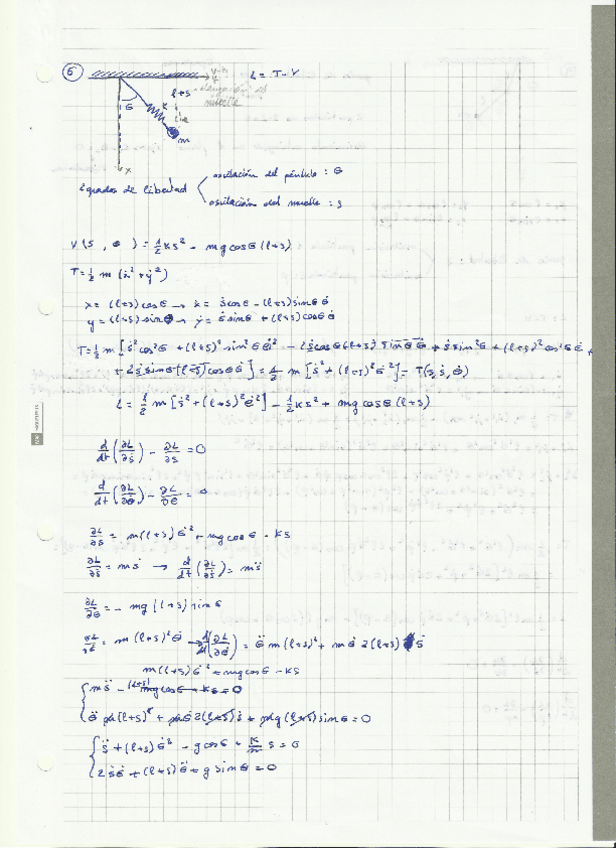 6
L = T - V
l+s
θ
m
x
Grados de libertad
oscilación del péndulo : θ
oscilación del muelle : s
V(s, θ) = 1/2 Ks² - mg cosθ (l+s)
T = 1/2 m (ẋ² + ẏ²)
x = (l+s) cosθ → ẋ = ṡ cosθ - (l+s) sinθ θ̇
y = (l+s) sinθ → ẏ = ṡ sinθ + (l+s) cosθ θ̇
T = 1/2 m [ṡ² cos²θ + (l+s)² sin²θ θ̇² - 2ṡ cosθ (l+s) sinθ θ̇ + ṡ sin²θ + (l+s)² cos²θ θ̇ +
+ 2ṡ sinθ (l+s) cosθ θ̇] = 1/2 m [ṡ² + (l+s)² θ̇²] = T(s, ṡ, θ̇)
L = 1/2 m [ṡ² + (l+s)² θ̇²] - 1/2 Ks² + mg cosθ (l+s)
d/dt (∂L/∂ṡ) - ∂L/∂s = 0
d/dt (∂L/∂θ̇) - ∂L/∂θ = 0
∂L/∂s = m(l+s) θ̇² + mg cosθ - Ks
∂L/∂ṡ = mṡ → d/dt (∂L/∂ṡ) = ms̈
∂L/∂θ = - mg (l+s) sinθ
∂L/∂θ̇ = m(l+s)² θ̇ → d/dt (∂L/∂θ̇) = θ̈ m(l+s)² + mθ̇ 2(l+s) ṡ
m(l+s) θ̇² + mg cosθ - Ks
ms̈ - (l+s) mg cosθ + Ks = 0
θ̈ m(l+s)² + mθ̇ 2(l+s) ṡ + mg (l+s) sinθ = 0
s̈ + (l+s) θ̇² - g cosθ + K/m s = 0
2ṡθ̇ + (l+s) θ̈ + g sinθ = 0